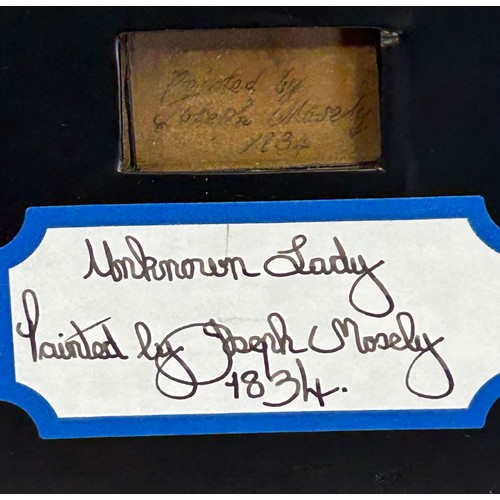 Painted by
Joseph Mosely
1834
Unknown Lady
Painted by Joseph Mosely
1834.